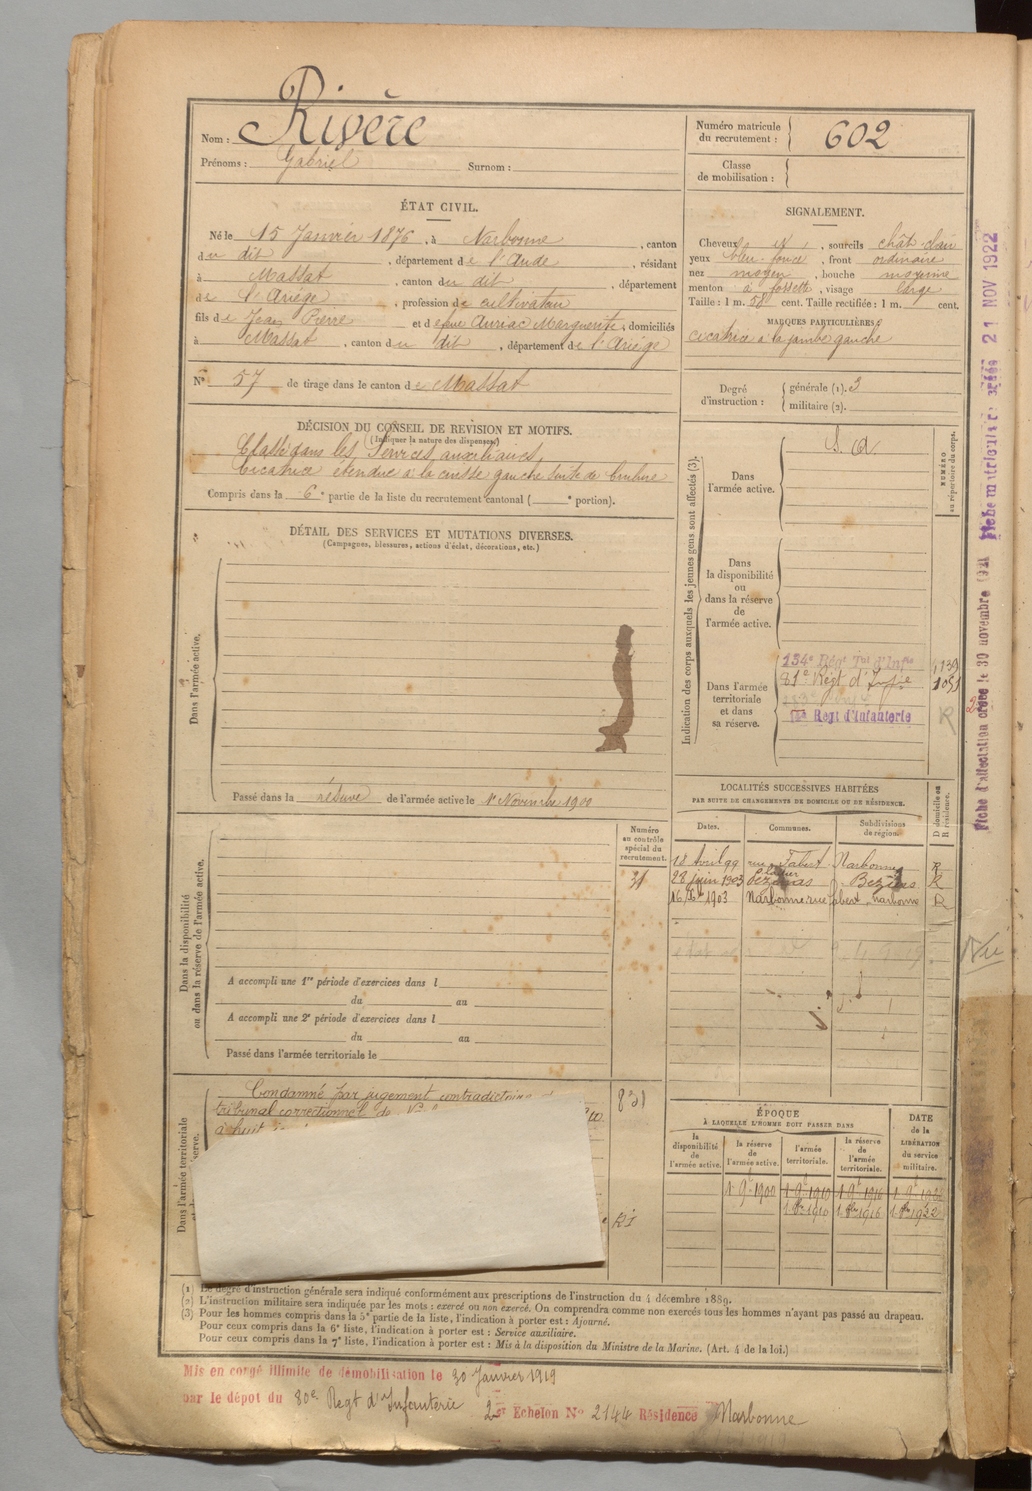 Nom : Rivère
Prénoms : Gabriel Surnom :
Numéro matricule du recrutement : 602
Classe de mobilisation :
ÉTAT CIVIL.
Né le 15 Janvier 1876, à Narbonne, canton
du dit, département de l'Aude, résidant
à Massat, canton du dit, département
de l'Ariège, profession de cultivateur
fils de Jean Pierre et de feue Auriac Marguerite, domiciliés
à Massat, canton du dit, département de l'Ariège
N° 57 de tirage dans le canton de Massat
SIGNALEMENT.
Cheveux et, sourcils chât clair
yeux bleu foncé, front ordinaire
nez moyen, bouche moyenne
menton à fossette, visage large
Taille : 1 m. 58 cent. Taille rectifiée : 1 m. cent.
MARQUES PARTICULIÈRES :
cicatrice à la jambe gauche
Degré d'instruction : générale (1). 3
militaire (2).
DÉCISION DU CONSEIL DE REVISION ET MOTIFS.
(Indiquer la nature des dispenses)
Classé dans les Services auxiliaires,
Cicatrice étendue à la cuisse gauche suite de brûlure
Compris dans la 6e partie de la liste du recrutement cantonal ( e portion).
DÉTAIL DES SERVICES ET MUTATIONS DIVERSES.
(Campagnes, blessures, actions d'éclat, décorations, etc.)
Dans l'armée active.
Passé dans la réserve de l'armée active le 1er Novembre 1900
Indication des corps auxquels les jeunes gens sont affectés (3).
NUMÉRO au répertoire du corps.
Dans l'armée active.
S. A.
Dans la disponibilité ou dans la réserve de l'armée active.
Dans l'armée territoriale et dans sa réserve.
134e Régt Tal d'Infie 1139
81e Régt d'Infie 1051
Régt d'Infanterie R
LOCALITÉS SUCCESSIVES HABITÉES
PAR SUITE DE CHANGEMENTS DE DOMICILE OU DE RÉSIDENCE.
Dates. Communes. Subdivisions de région. D domicile ou R résidence.
18 Avril 99 rue Fabert Narbonne R
28 juin 1903 Béziers R
16 1903 Narbonne rue Fabert Narbonne R
Dans la disponibilité ou dans la réserve de l'armée active.
Numéro au contrôle spécial du recrutement.
31
A accompli une 1re période d'exercices dans l
du au
A accompli une 2e période d'exercices dans l
du au
Passé dans l'armée territoriale le
Dans l'armée territoriale
Condamné par jugement contradictoire
tribunal correctionnel de
à huit
831
RI
ÉPOQUE
À LAQUELLE L'HOMME DOIT PASSER DANS
la disponibilité de l'armée active. la réserve de l'armée active. l'armée territoriale. la réserve de l'armée territoriale. DATE de la LIBÉRATION du service militaire.
1 9e 1900 1 9e 1910 1 9e 1916 1 9e 1922
1 8bre 1910 1 8bre 1916 1 8bre 1922
(1) Le degré d'instruction générale sera indiqué conformément aux prescriptions de l'instruction du 4 décembre 1889.
(2) L'instruction militaire sera indiquée par les mots : exercé ou non exercé. On comprendra comme non exercés tous les hommes n'ayant pas passé au drapeau.
(3) Pour les hommes compris dans la 5e partie de la liste, l'indication à porter est : Ajourné.
Pour ceux compris dans la 6e liste, l'indication à porter est : Service auxiliaire.
Pour ceux compris dans la 7e liste, l'indication à porter est : Mis à la disposition du Ministre de la Marine. (Art. 4 de la loi.)
Mis en congé illimité de démobilisation le 30 Janvier 1919
par le dépot du 80e Regt d'Infanterie 2e Echelon No 2144 Résidence Narbonne
Fiche d'affectation créée le 30 novembre 1921 Fiche matricule créée 21 NOV 1922
Vu